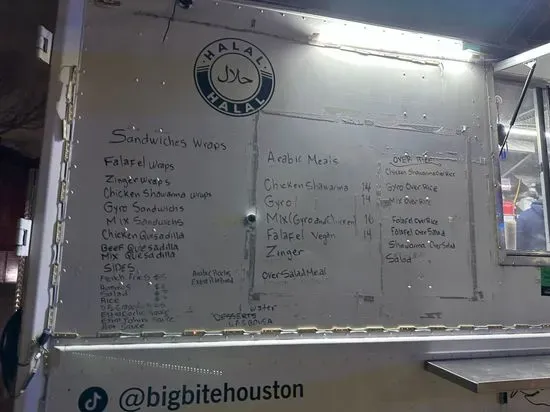 HALAL
حلال
HALAL
Sandwiches Wraps
Falafel Wraps
Zinger Wraps
Chicken Shawarma Wraps
Gyro Sandwichs
Mix Sandwichs
Chicken Quesadilla
Beef Quesadilla
Mix Quesadilla
SIDES
French Fries
Hummus
Salad
Rice
Extra Garlic Sauce
Hot Sauce
Arabic Meals
Chicken Shawarma 14
Gyro 14
Mix (Gyro and Chicken) 16
Falafel Vegan 14
Zinger
Over Salad Meal
water
DESSERTS
OVER RICE
Chicken Shawarma Over Rice
Gyro Over Rice
Mix Over Rice
Falafel Over Rice
Falafel Over Salad
Shawarma Over Salad
Salad
@bigbitehouston